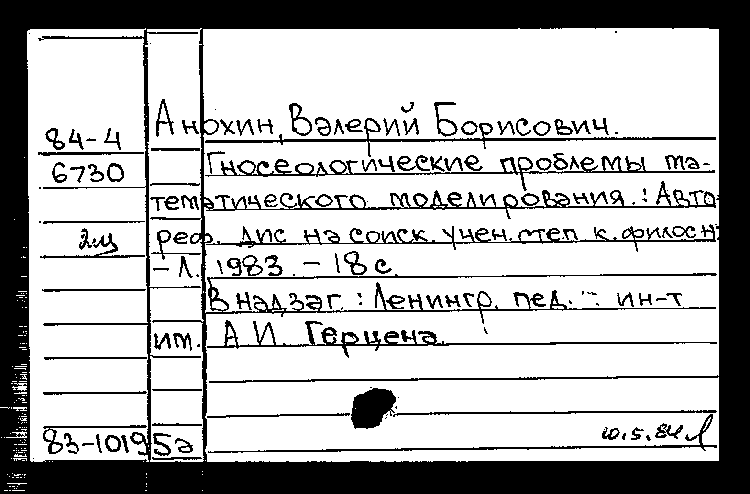 Анохин, Валерий Борисович.
84-4
6730
Гносеологические проблемы ма-
тематического моделирования.: Авто-
реф. дис на соиск. учен. степ к. филос н
- Л. 1983. - 18 с.
В надзаг.: Ленингр. пед. ин-т
им. А И. Герцена.
83-10195а
10.5.84